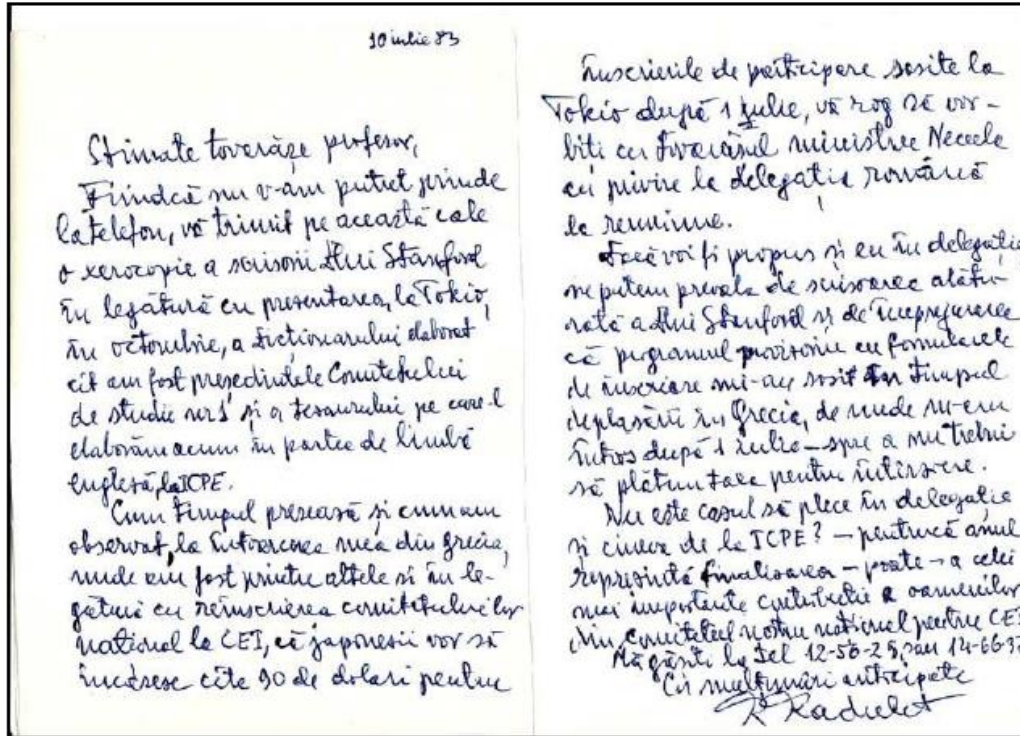 10 iulie 83
Stimate tovarăşe profesor,
Fiindcă nu v-am putut prinde
la telefon, vă trimit pe această cale
o xerocopie a scrisorii dlui Stanford
în legătură cu prezentarea, la Tokio,
în octombrie, a dicţionarului elaborat
cît am fost preşedintele Comitetului
de studii nr 1 şi a tesaurului pe care-l
elaborăm acum în partea de limbă
engleză, la ICPE.
Cum timpul presează şi cum am
observat, la întoarcerea mea din Grecia,
unde am fost printre altele şi în le-
gătură cu reînscrierea comitetului
naţional la CEI, că japonesii vor să
încaseze cîte 90 de dolari pentru
înscrierile de participare sosite la
Tokio după 1 iulie, vă rog să vor-
biti cu tovarăşul ministru Necula
cu privire la delegaţia română
la reuniune.
Dacă voi fi propus şi eu în delegaţie
ne putem prevala de scrisoarea alătu-
rată a dlui Stanford şi de împrejurarea
că programul provizoriu cu formularele
de înscriere mi-au sosit în timpul
deplasării în Grecia, de unde m-am
întors după 1 iulie – spre a nu trebui
să plătim taxa pentru întîrziere.
Nu este cazul să plece în delegaţie
şi cineva de la ICPE? – pentrucă anul
reprezintă finalizarea – poate – a celei
mai importante contribuţii a oamenilor
din comitetul nostru naţional pentru CEI
Mă găsiti la Tel 12-56-29 sau 14-66-
Cu mulţumiri anticipate
R Radulet